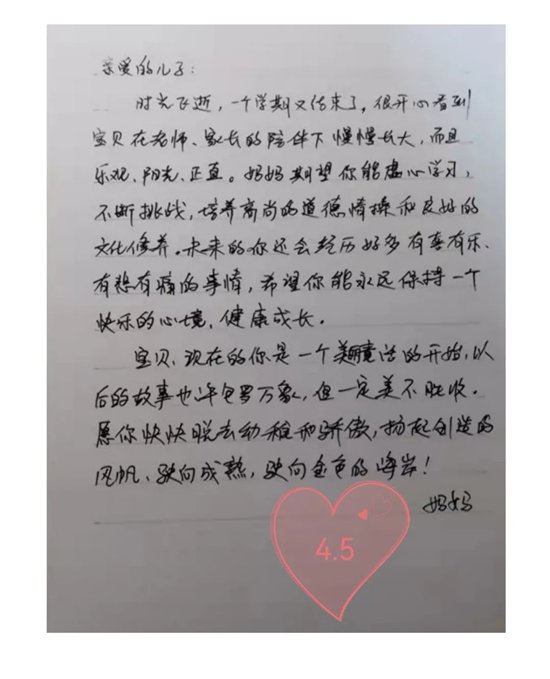 亲爱的儿子:
时光飞逝,一个学期又结束了,很开心看到
宝贝在老师、家长的陪伴下慢慢长大,而且
乐观、阳光、正直。妈妈期望你能虚心学习,
不断挑战,培养高尚的道德情操和良好的
文化修养。未来的你还会经历好多有喜有乐、
有悲有痛的事情,希望你能永远保持一个
快乐的心境,健康成长。
宝贝、现在的你是一个美丽童话的开始,以
后的故事也许包罗万象,但一定美不胜收。
愿你快快脱去幼稚和骄傲,扬起创造的
风帆、驶向成熟,驶向金色的海岸!
妈妈
4.5